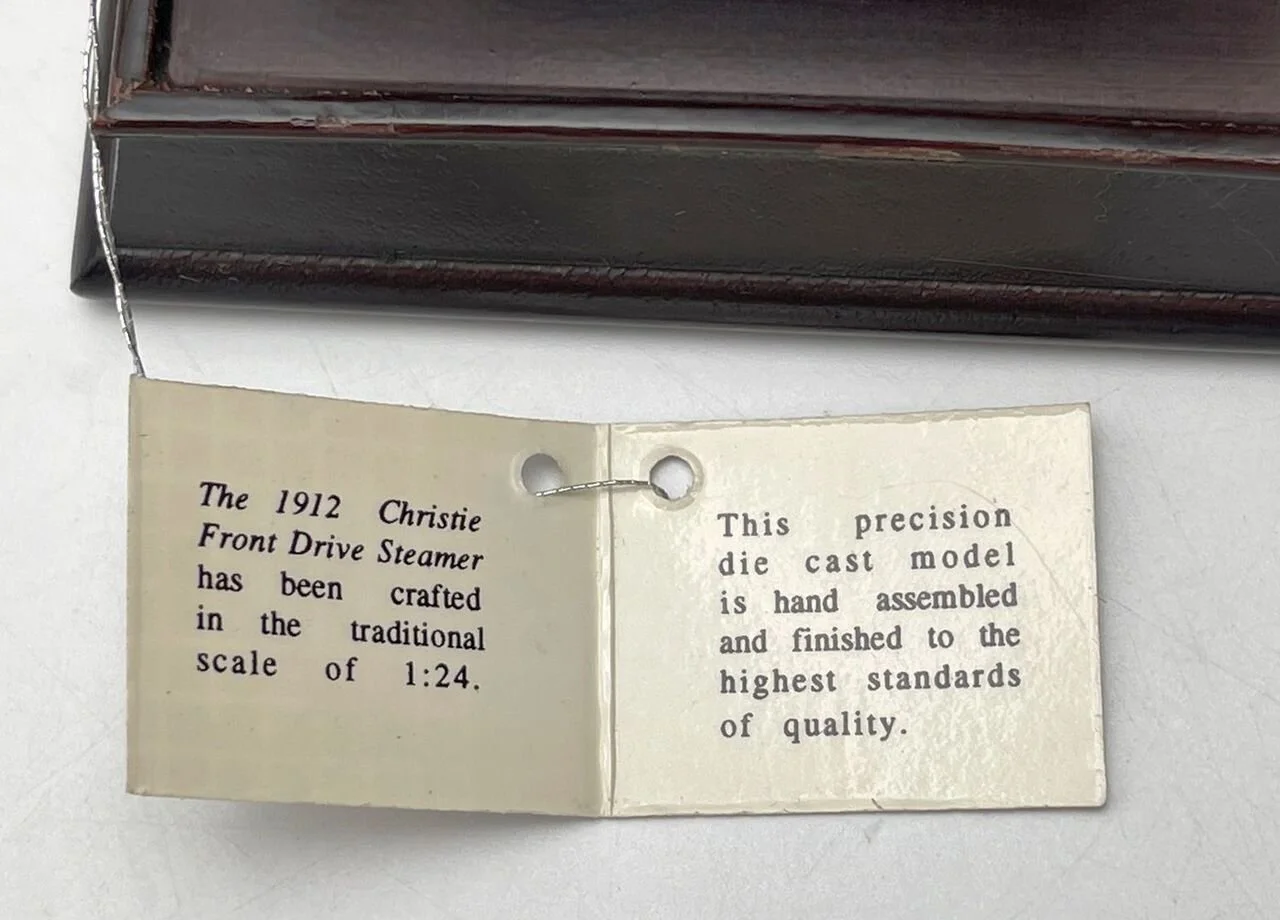 The 1912 Christie
Front Drive Steamer
has been crafted
in the traditional
scale of 1:24.
This precision
die cast model
is hand assembled
and finished to the
highest standards
of quality.